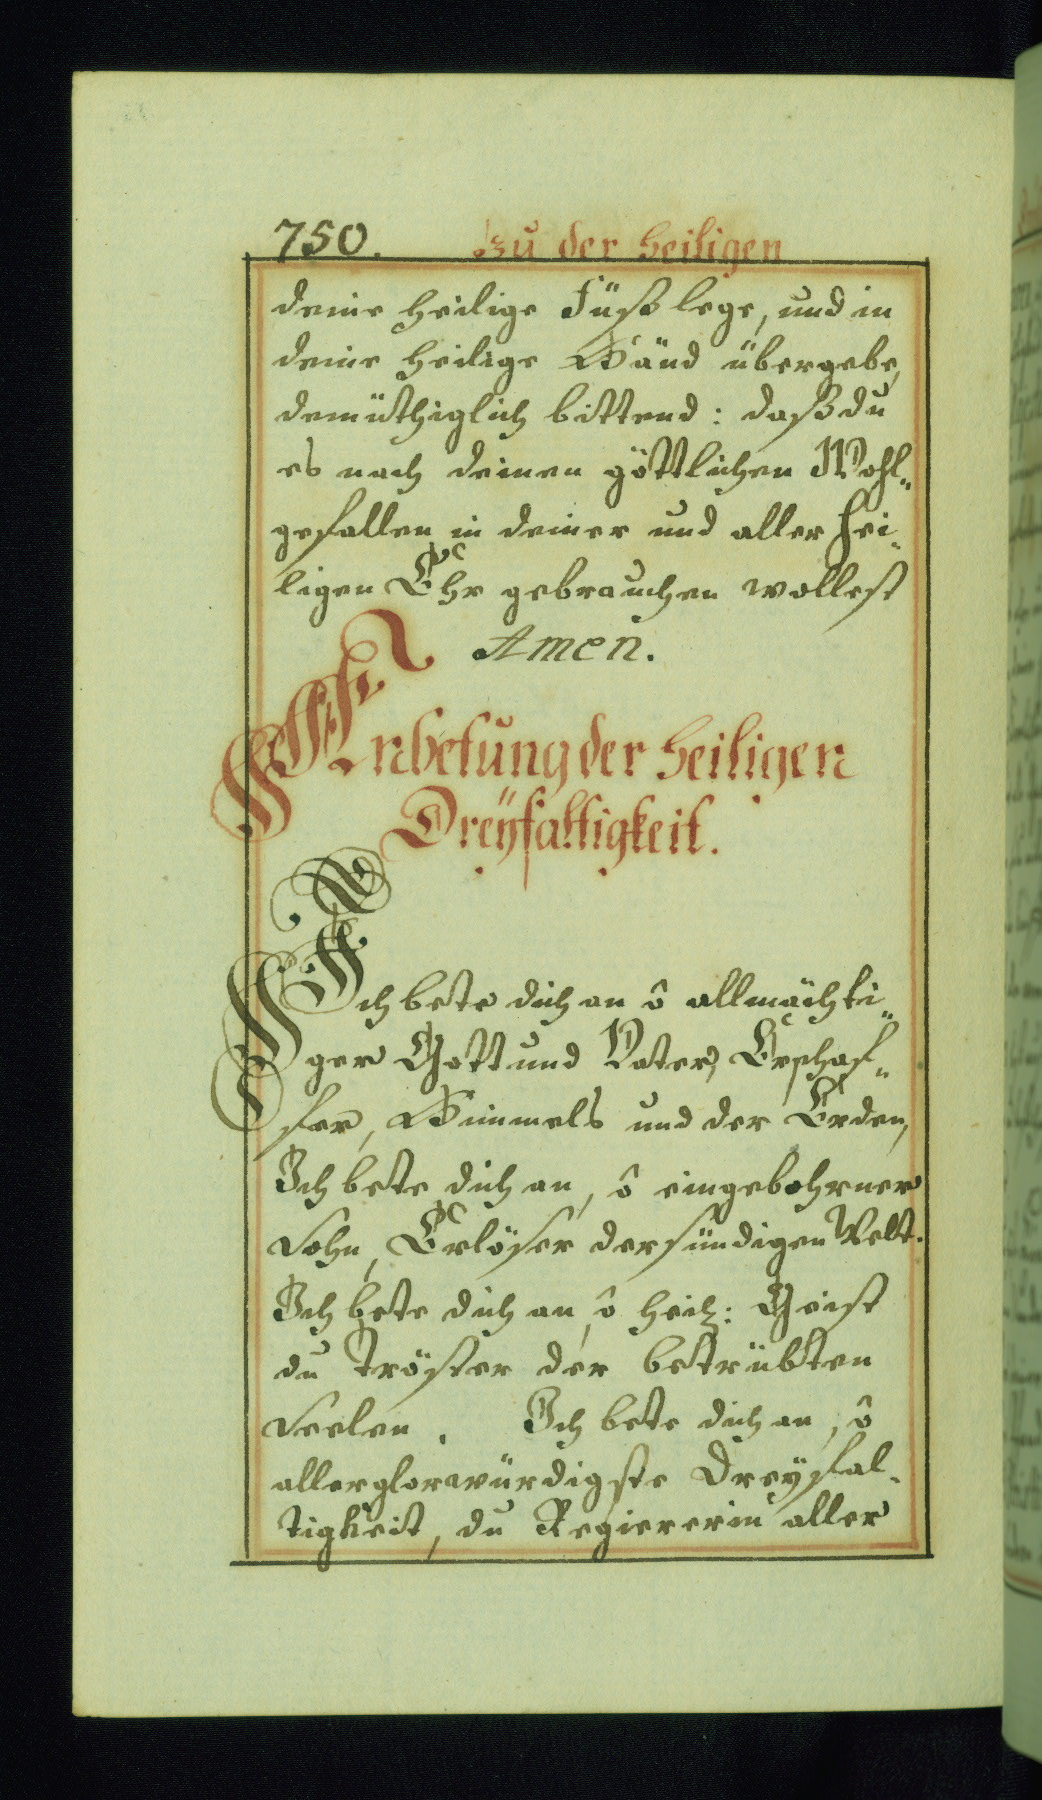 750. Zu der Heiligen
deine heilige Füß lege, und in
deine heilige Händ übergebe,
demüthiglich bittend: daß du
es nach deinen göttlichen Wohl„
gefallen in deiner und aller Hei„
ligen Ehr gebrauchen wollest
Amen.
Anbetung der Heiligen
Dreÿfaltigkeit.
Ich bete dich an ô allmächti„
ger Gott und Vater, Erschaf„
fer, Himmels und der Erden,
Ich bete dich an, ô eingebohrner
Sohn, Erlöser der sündigen Welt.
Ich bete dich an, ô heil: Geist
du Tröster der betrübten
Seelen. Ich bete dich an, ô
allerglorwürdigste Dreÿfal„
tigkeit, du Regiererin aller